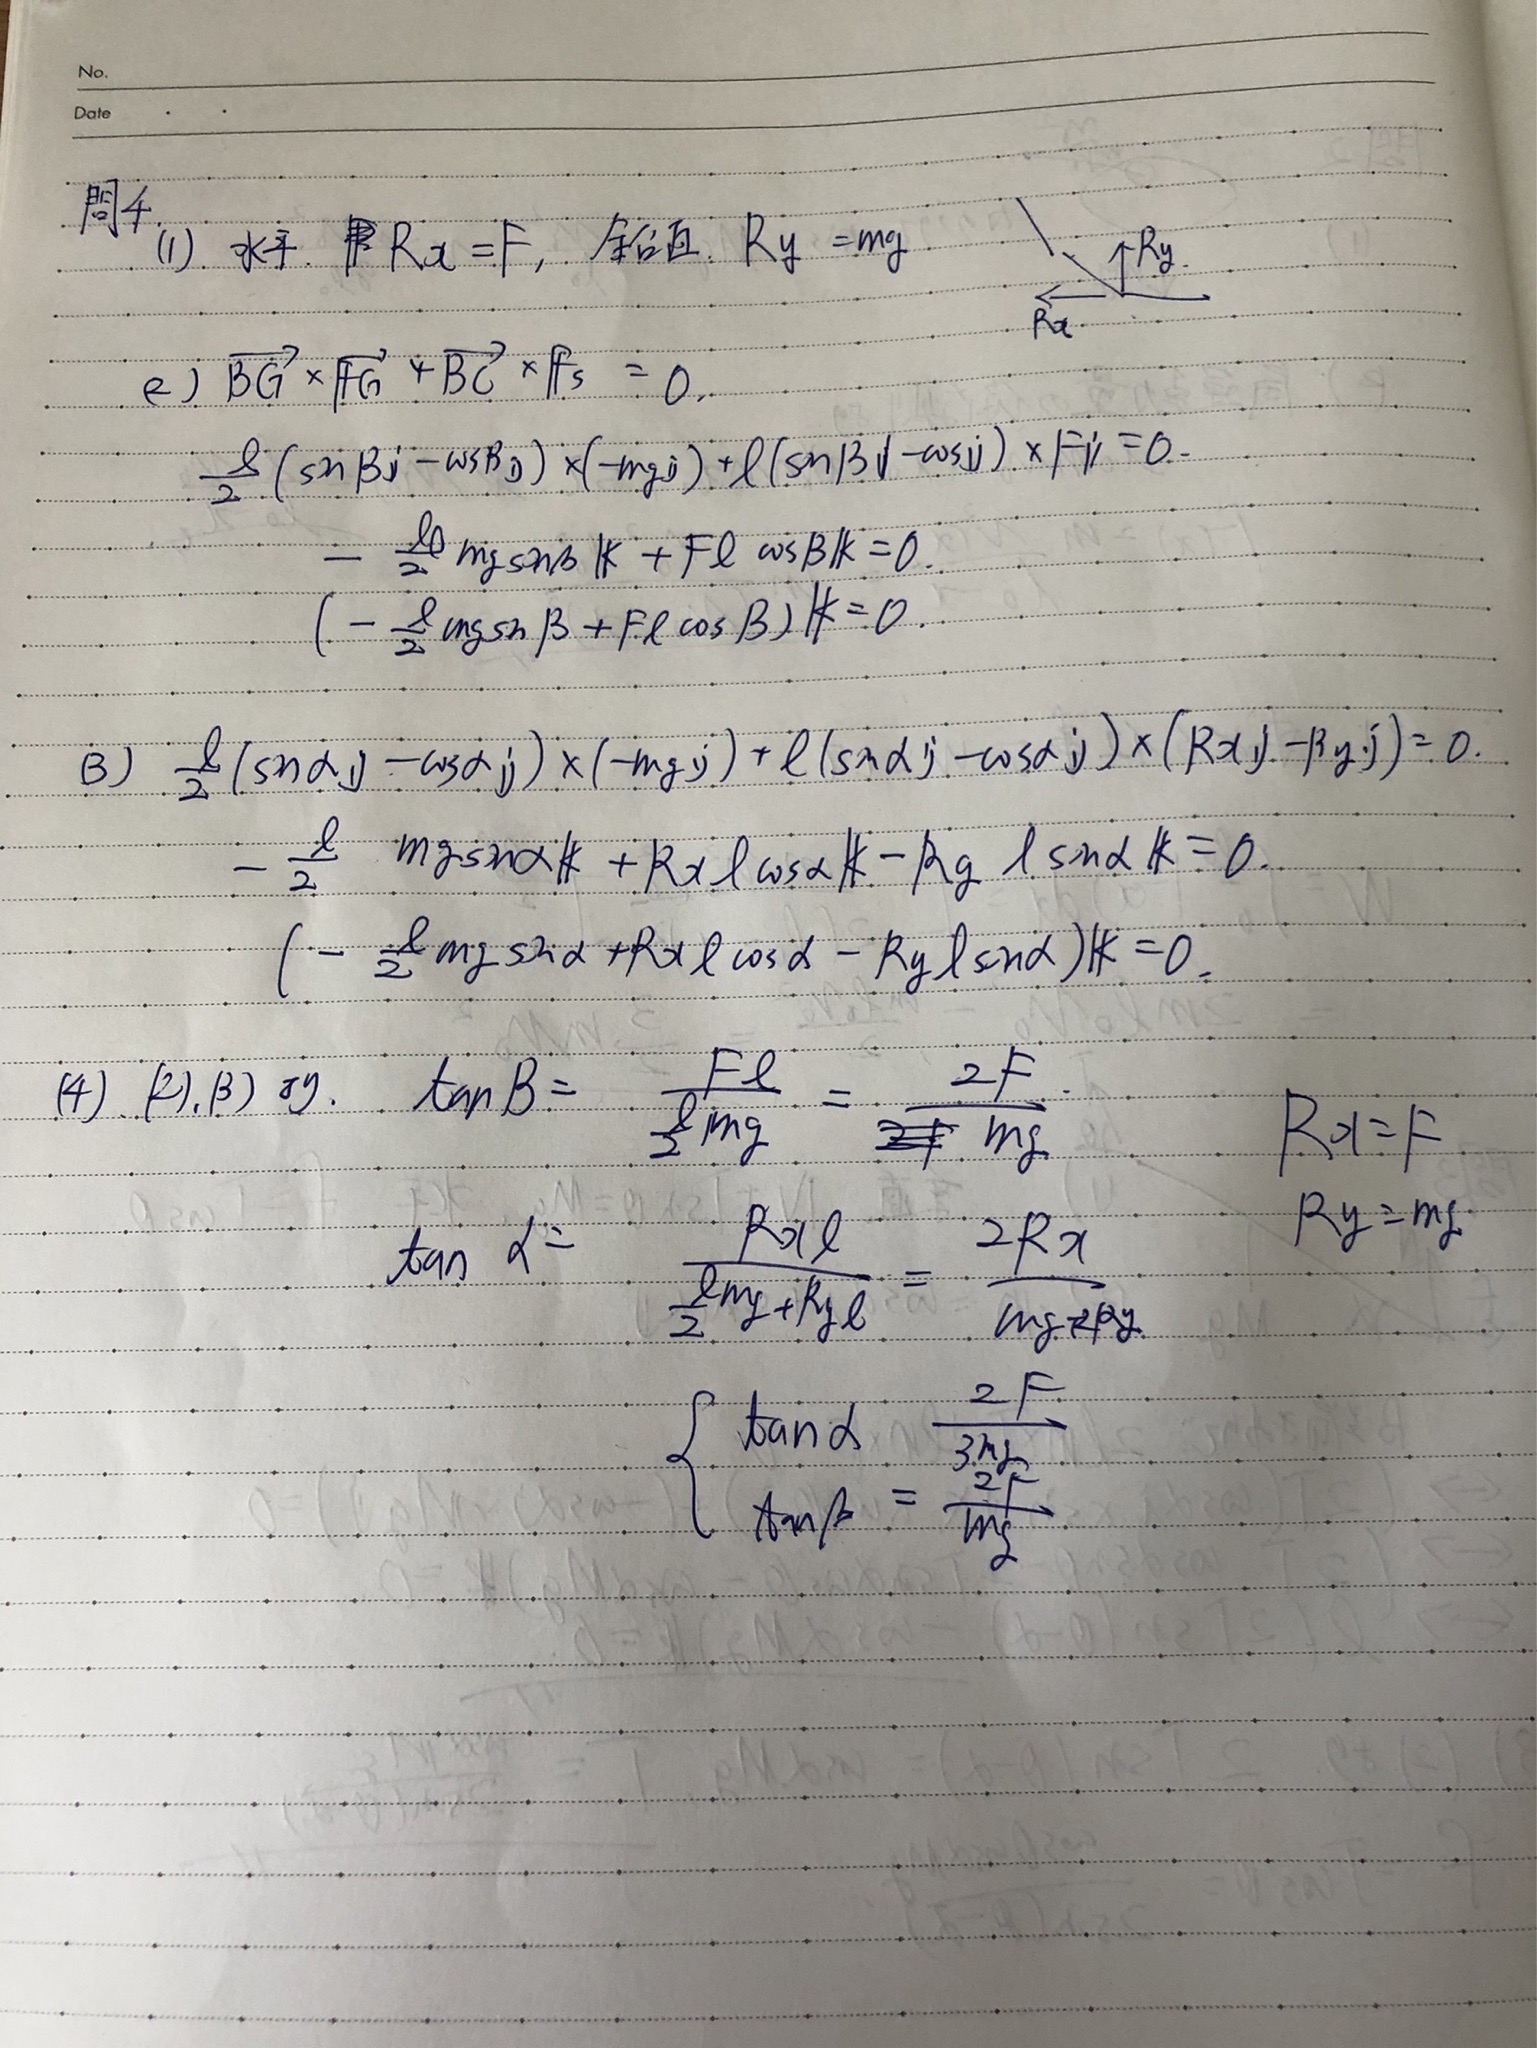 No.
Date
問4.
(1) 水平. Rx = F, 鉛直. Ry = mg
Ry
Rx
2) BG × FG + BC × Fs = 0.
l/2 (sinβi - cosβj) × (-mgj) + l(sinβi - cosj) × Fi = 0.
- l/2 mg sinβ k + Fl cosβ k = 0.
(- l/2 mg sinβ + Fl cosβ) k = 0.
3) l/2 (sinαi - cosαj) × (-mgj) + l(sinαi - cosαj) × (Rxi - Ryj) = 0.
- l/2 mg sinα k + Rx l cosα k - Ry l sinα k = 0.
(- l/2 mg sinα + Rx l cosα - Ry l sinα) k = 0.
(4). (2), (3) より. tanβ = Fl / (l/2 mg) = 2F / mg.
Rx = F
Ry = mg.
tan α = Rx l / (l/2 mg + Ry l) = 2Rx / (mg + 2Ry).
{ tanα 2F / 3mg
tanβ = 2F / mg